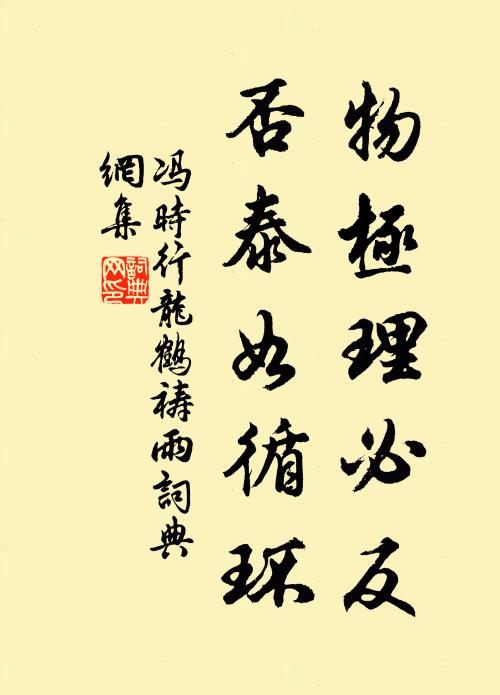 物極理必反
否泰如循环
冯時行龍鶴禱雨詞典
網集
詞典
网印